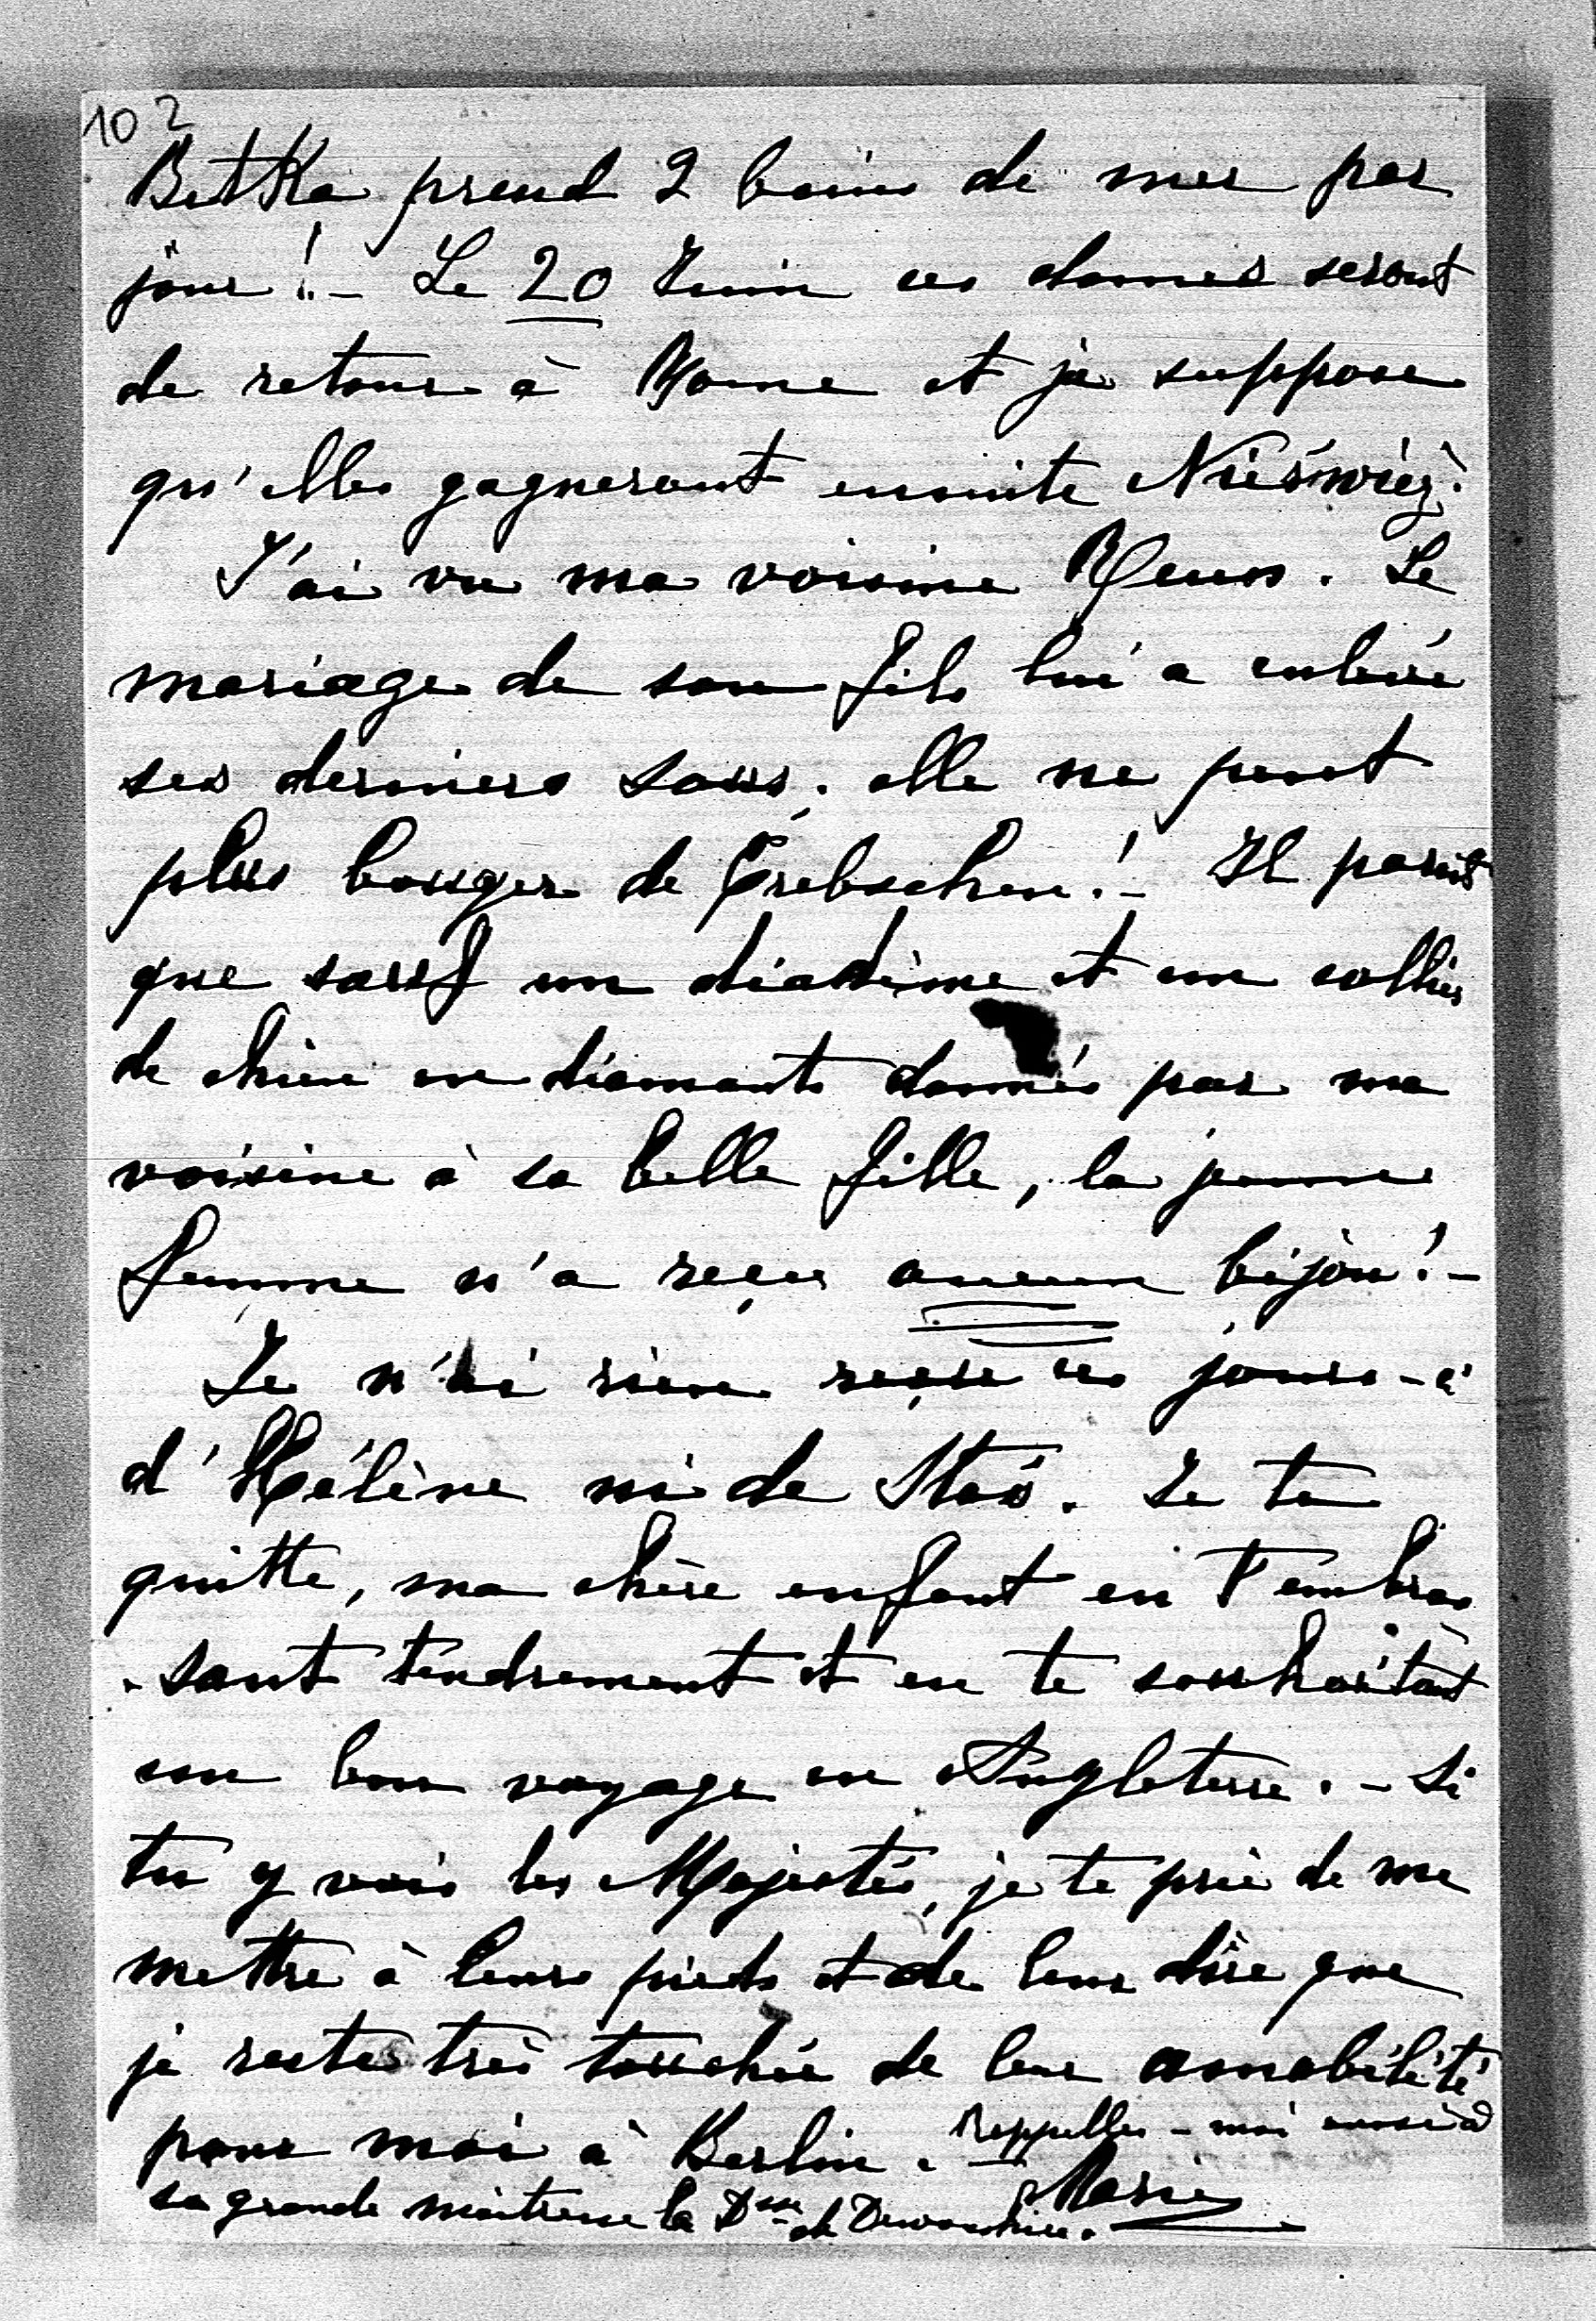 102
BetKa prend 2 bains de mer par
jour !- Le 20 Juin ces dames seront
de retour à Rome et je suppose
qu'elles gagneront ensuite Nieśwież.
J'ai vu ma voisine Reuss. Le
mariage de son fils lui a enlevé
ses derniers sous; elle ne peut
plus bouger de Trebschen !- Il parait
que sauf un diadème et un collier
de chien en diamants donnés par ma
voisine à sa belle fille, la jeune
femme n'a reçu aucun bijou !-
Je n'ai rien reçu ces jours-ci
d'Hélène ni de Staś. Je te
quitte, ma chère enfant en t'embras
-sant tendrement et en te souhaitant
un bon voyage en Angleterre. - Si
tu y vois les Majestés, je te prie de me
mettre à leurs pieds et de leur dire que
je reste très touchée de leur amabilité
pour moi à Berlin. - Rappelles-moi aussi à
sa grande maitresse la Dsse de Devonshire.
Marie